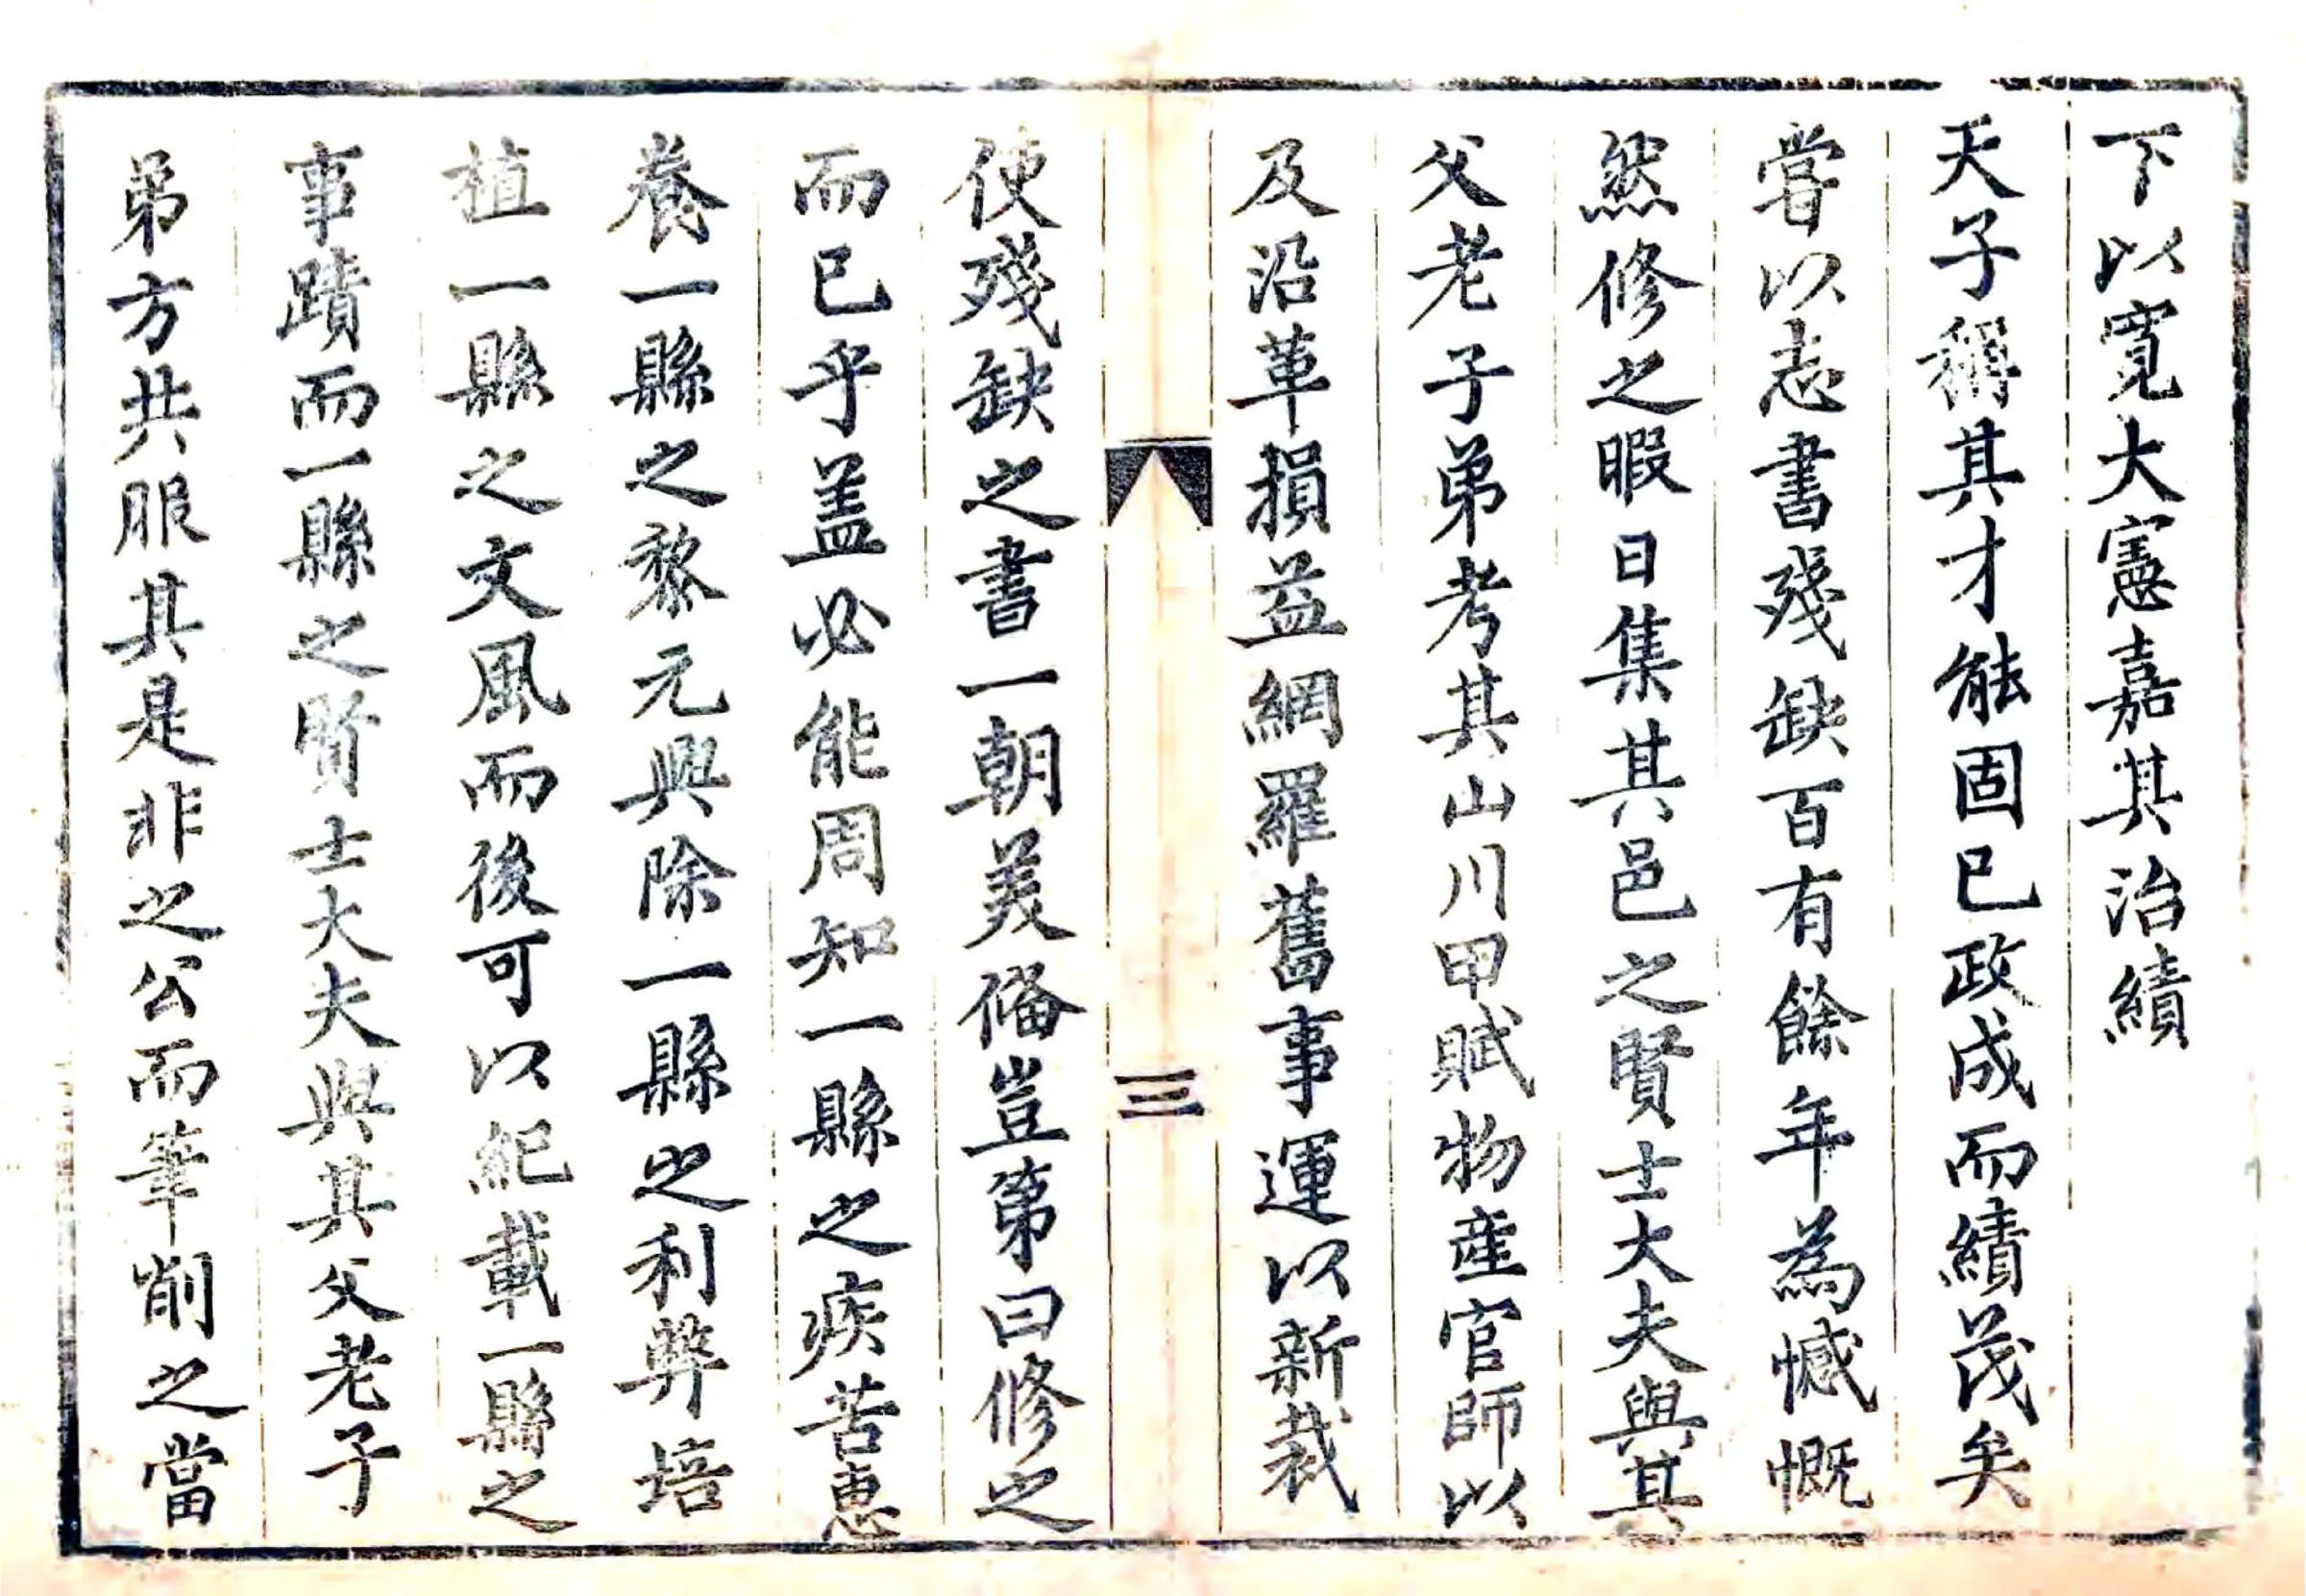 下以寬大憲嘉其治績
天子稱其才能固已政成而績茂矣
嘗以志書殘缺百有餘年為憾慨
然修之暇日集其邑之賢士大夫與其
父老子弟考其山川甲賦物產官師以
及沿革損益網羅舊事運以新裁
三
使殘缺之書一朝美俻豈第曰修之
而已乎葢必能周知一縣之疾苦惠
養一縣之黎元興除一縣之利弊培
植一縣之文風而後可以紀載一縣之
事蹟而一縣之賢士大夫與其父老子
弟方共服其是非之公而筆削之當